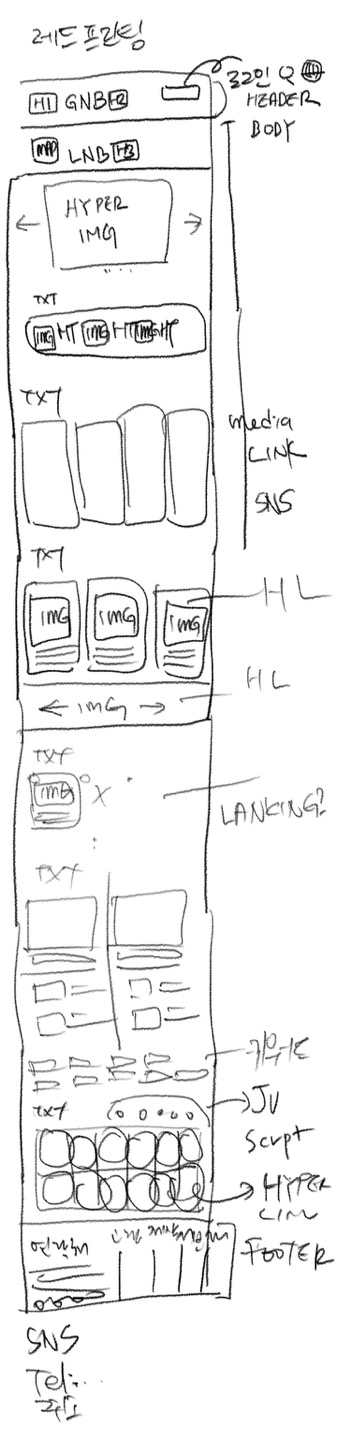 레드프린팅
로그인 Q
H1 GNB H2
HEADER
BODY
MAP LNB H3
HYPER
IMG
TXT
IMG HT IMG HT IMG HT
TXT
media
LINK
SNS
TXT
IMG IMG IMG
HL
← IMG →
HL
TXT
IMG X
LANKING?
TXT
키워드
TXT
JV
Script
HYPER
LIN
FOOTER
SNS
Tel:...
주소